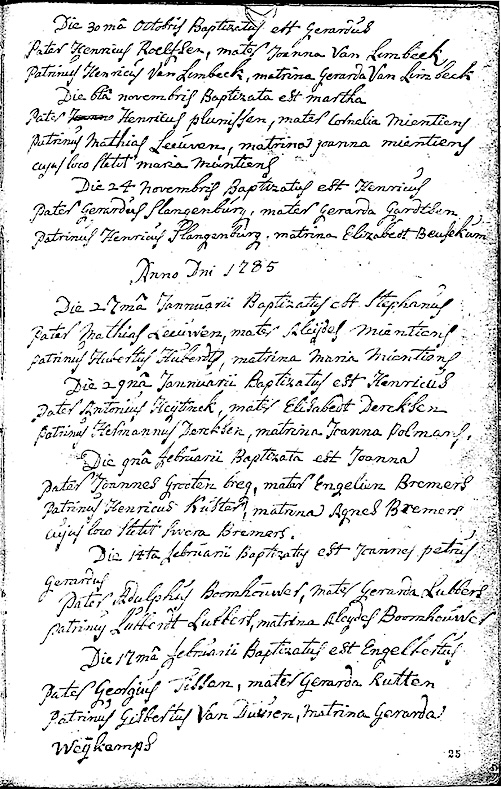 Die 30mâ Octobris Baptizatus est Gerardus
Pater Henricus Roelfsen, mater Joanna Van Limbeek
Patrinus Henricus Van Limbeek, matrina Gerarda Van Limbeck
Die 6tâ novembris Baptizata est martha
Pater Henricus plunissen, mater Cornelia Mientiens
Patrinus Mathias Leeuwen, matrina joanna mientiens
cujus loco stetit maria Mientiens
Die 24 novembris Baptizatus est Henricus
Pater Gerardus Slangenburg, mater Gerarda Gerdtsen
Patrinus Henricus Slangenburg, matrina Elizabeth Beusekum
Anno Dni 1785
Die 27mâ Jannuarii Baptizatus est Stephanus
pater Mathias Leeuwen, mater Aleijdes Mientiens
patrinus Hubertus Huberts, matrina Maria Mientiens
Die 29nâ Jannuarii Baptizatus est Henricus
Pater Antonius Heijtinck, mater Elisabeth Dercksen
Patrinus Hermannus Dercksen, matrina Joanna Polmans.
Die 9nâ februarii Baptizata est Joanna
Pater Joannes Grooten breg, mater Engelien Bremers
Patrinus Henricus Kuster, matrina Agnes Bremers
cujus loco stetit Bremers.
Die 14ta februarii Baptizatus est Joannes petrus
Gerardus
Pater Adulphus Boomhouwer, mater Gerarda Lubbers
patrinus Lubbert Lubbers, matrina Aleydes Boomhouwer
Die 17mâ februarii Baptizatus est Engelbertus
Pater Georgius Tissen, mater Gerarda Rutten
Patrinus Gisbertus Van Duuren, matrina Gerarda
Weijkamps
25